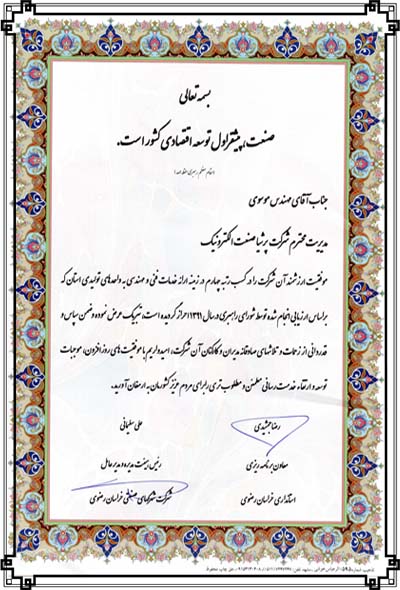 بسمه تعالی
صنعت، پیشقراول توسعه اقتصادی کشور است.
(مقام معظم رهبری مدظله)
جناب آقای مهندس موسوی
مدیریت محترم شرکت پرشیا صنعت الکترونیک
موفقیت ارزشمند آن شرکت را در کسب رتبه چهارم در زمینه ارائه خدمات فنی و مهندسی به واحدهای تولیدی استان که
براساس ارزیابی انجام شده توسط شورای راهبری در سال ۱۳۹۱ احراز گردیده است، تبریک عرض نموده و ضمن سپاس و
قدردانی از زحمات و تلاشهای صادقانه مدیران و کارکنان آن شرکت، امیدواریم با موفقیت های روزافزون، موجبات
توسعه و ارتقاء خدمت رسانی مطمئن و مطلوب تری را برای مردم عزیز کشورمان به ارمغان آورید.
رضا جمشیدی
معاون برنامه ریزی
استانداری خراسان رضوی
علی سلیمانی
رئیس هیئت مدیره و مدیرعامل
شرکت شهرکهای صنعتی خراسان رضوی